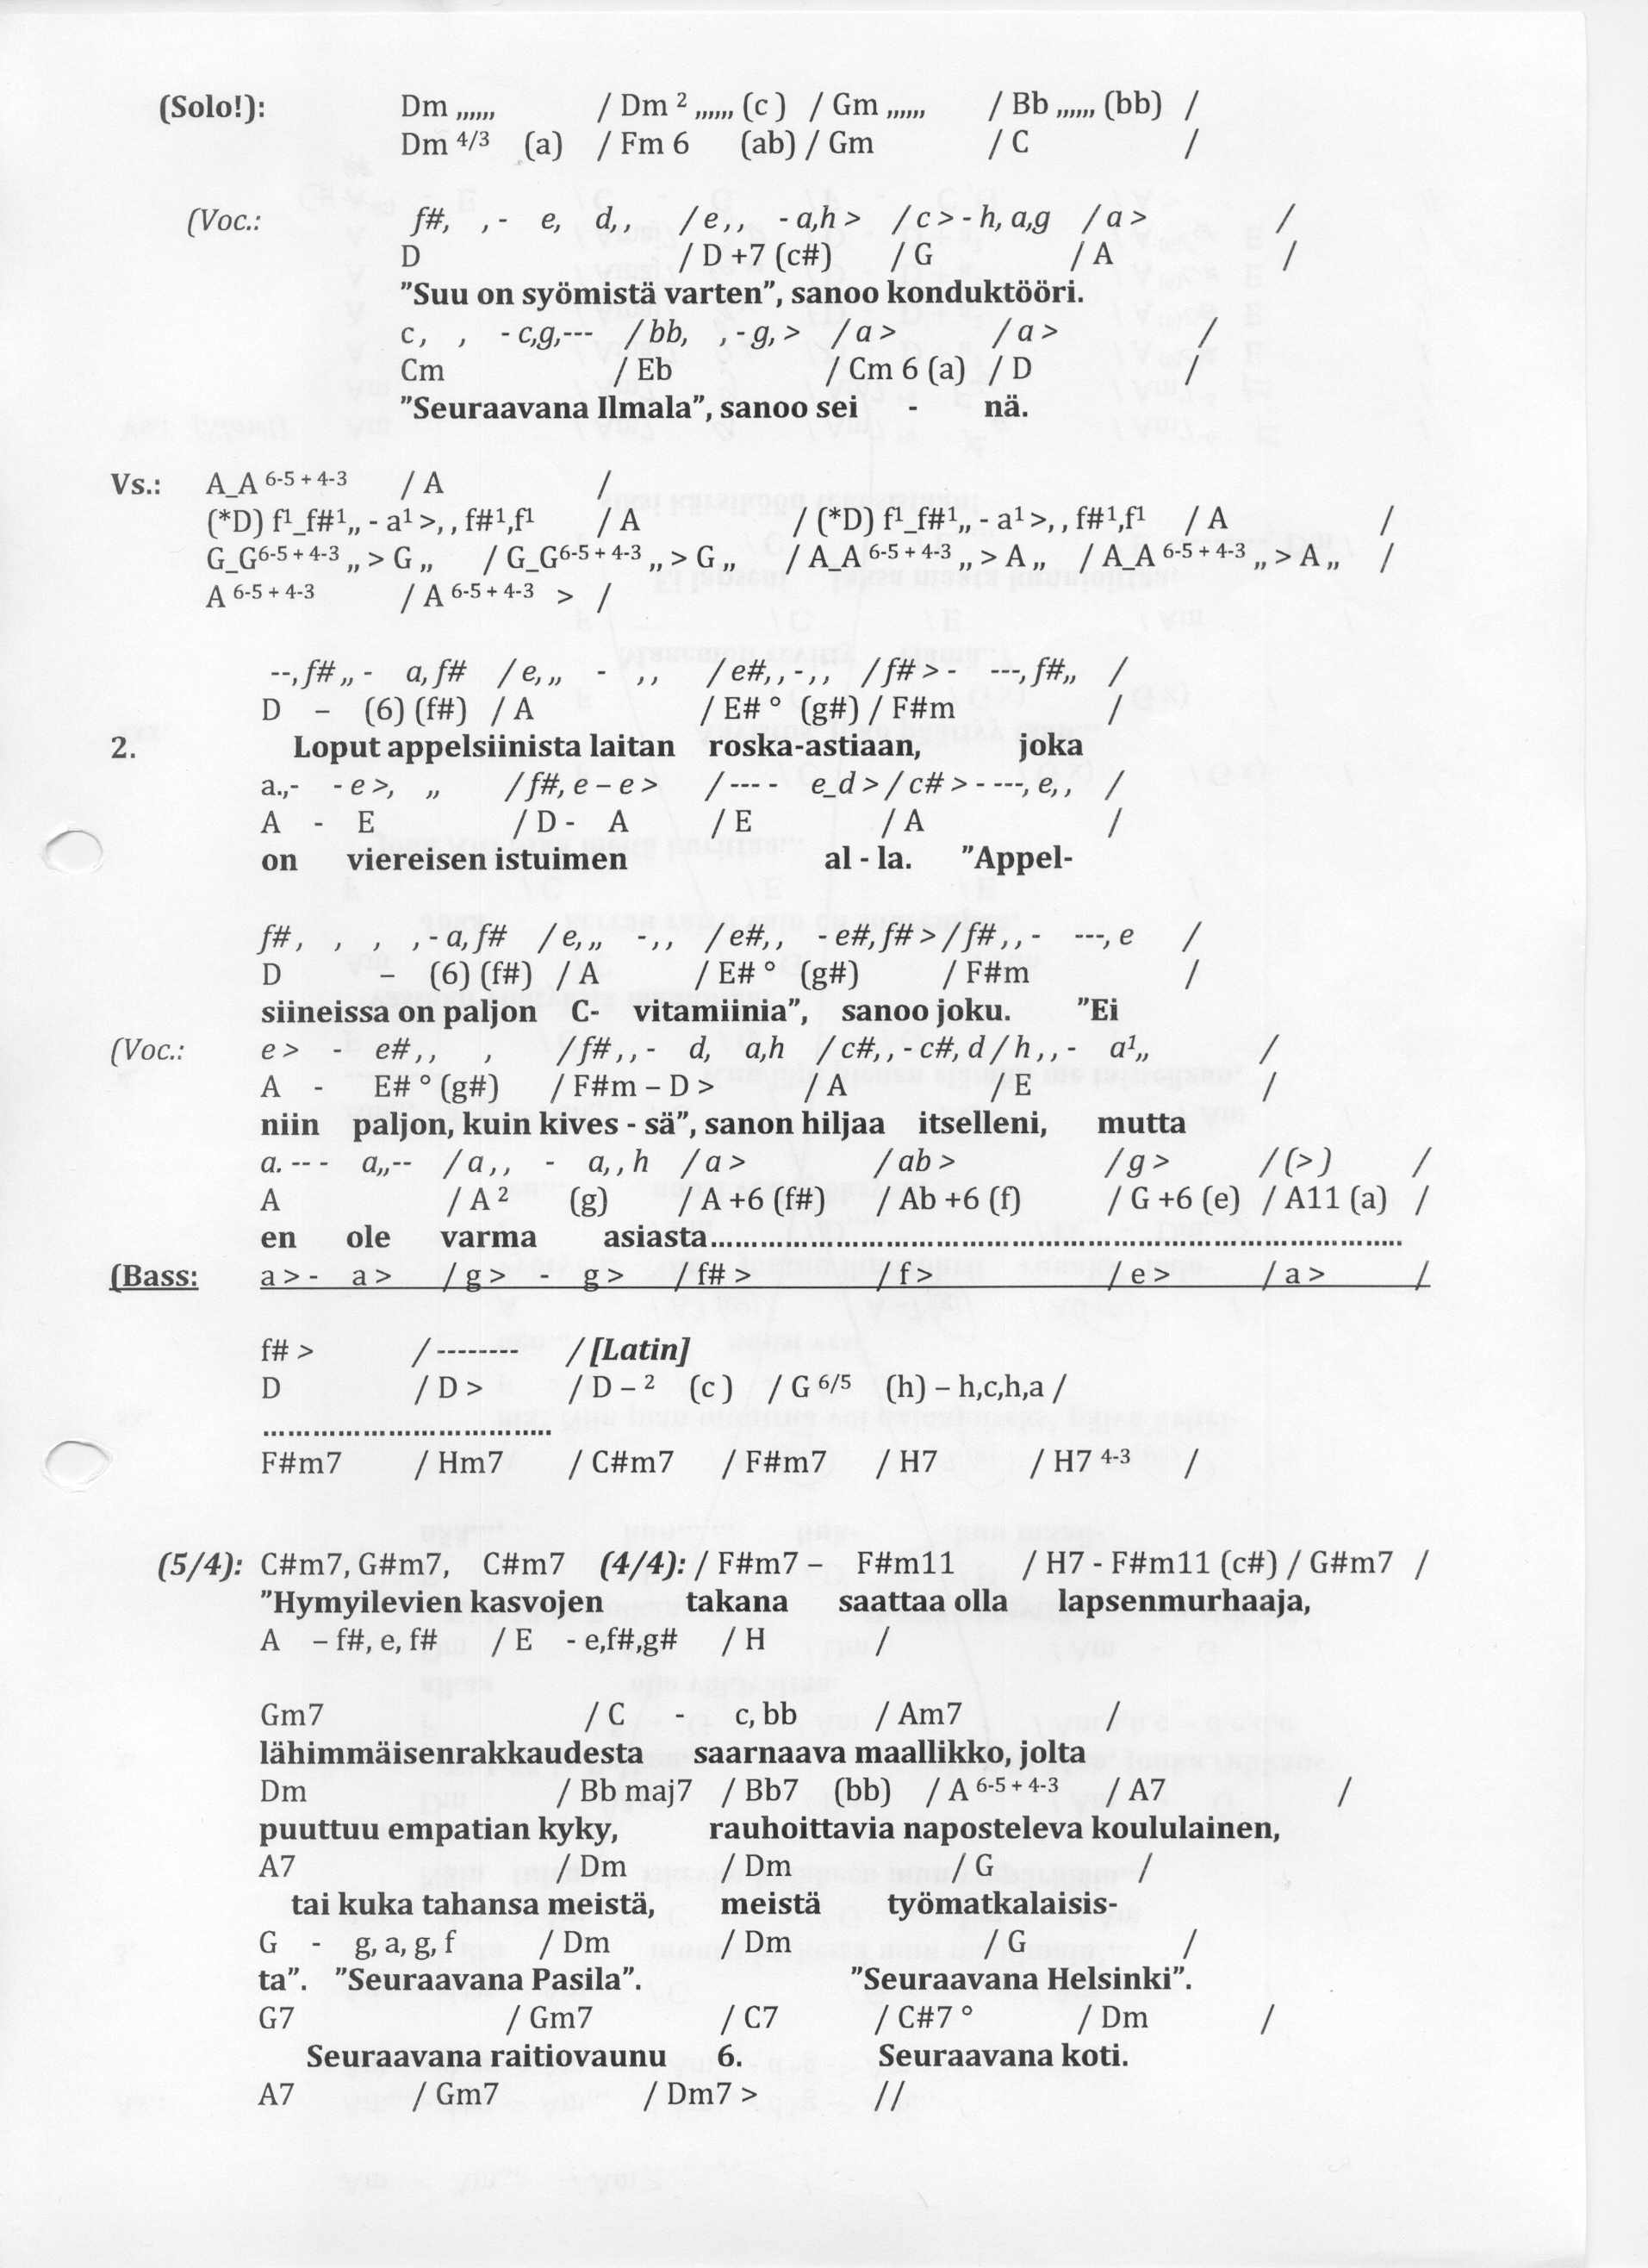 (Solo!): Dm ,,,,,, / Dm ² ,,,,,, (c ) / Gm ,,,,,, / Bb ,,,,,, (bb) /
Dm 4/3 (a) / Fm 6 (ab) / Gm / C /
(Voc.: f#, , - e, d, , / e , , - a,h > / c > - h, a,g / a > /
D / D +7 (c#) / G / A /
”Suu on syömistä varten”, sanoo konduktööri.
c, , - c,g,--- / bb, , - g, > / a > / a > /
Cm / Eb / Cm 6 (a) / D /
”Seuraavana Ilmala”, sanoo sei - nä.
Vs.: A_A 6-5 + 4-3 / A /
(*D) f¹_f#¹,, - a¹ >, , f#¹,f¹ / A / (*D) f¹_f#¹,, - a¹ >, , f#¹,f¹ / A /
G_G6-5 + 4-3 ,, > G ,, / G_G6-5 + 4-3 ,, > G ,, / A_A 6-5 + 4-3 ,, > A ,, / A_A 6-5 + 4-3 ,, > A ,, /
A 6-5 + 4-3 / A 6-5 + 4-3 > /
--, f# ,, - a, f# / e, ,, - , , / e#, , - , , / f# > - ---, f#,, /
D – (6) (f#) / A / E# ° (g#) / F#m /
2. Loput appelsiinista laitan roska-astiaan, joka
a.,- - e >, ,, / f#, e – e > / ---- e_d > / c# > - ---, e, , /
A - E / D - A / E / A /
on viereisen istuimen al - la. ”Appel-
f#, , , , - a, f# / e, ,, -, , / e#, , - e#, f# > / f# , , - ---, e /
D – (6) (f#) / A / E# ° (g#) / F#m /
siineissa on paljon C- vitamiinia”, sanoo joku. ”Ei
(Voc.: e > - e#, , , / f# , , - d, a,h / c#, , - c#, d / h , , - a¹,, /
A - E# ° (g#) / F#m – D > / A / E /
niin paljon, kuin kives - sä”, sanon hiljaa itselleni, mutta
a. -- - a,,-- / a , , - a, , h / a > / ab > / g > / (> ) /
A / A ² (g) / A +6 (f#) / Ab +6 (f) / G +6 (e) / A11 (a) /
en ole varma asiasta..................................................................................
(Bass: a > - a > / g > - g > / f# > / f > / e > / a > /
f# > / -------- / [Latin]
D / D > / D – ² (c ) / G 6/5 (h) – h,c,h,a /
..................................
F#m7 / Hm7 / C#m7 / F#m7 / H7 / H7 4-3 /
(5/4): C#m7, G#m7, C#m7 (4/4): / F#m7 – F#m11 / H7 - F#m11 (c#) / G#m7 /
”Hymyilevien kasvojen takana saattaa olla lapsenmurhaaja,
A – f#, e, f# / E - e,f#,g# / H /
Gm7 / C - c, bb / Am7 /
lähimmäisenrakkaudesta saarnaava maallikko, jolta
Dm / Bb maj7 / Bb7 (bb) / A 6-5 + 4-3 / A7 /
puuttuu empatian kyky, rauhoittavia naposteleva koululainen,
A7 / Dm / Dm / G /
tai kuka tahansa meistä, meistä työmatkalaisis-
G - g, a, g, f / Dm / Dm / G /
ta”. ”Seuraavana Pasila”. ”Seuraavana Helsinki”.
G7 / Gm7 / C7 / C#7 ° / Dm /
Seuraavana raitiovaunu 6. Seuraavana koti.
A7 / Gm7 / Dm7 > //